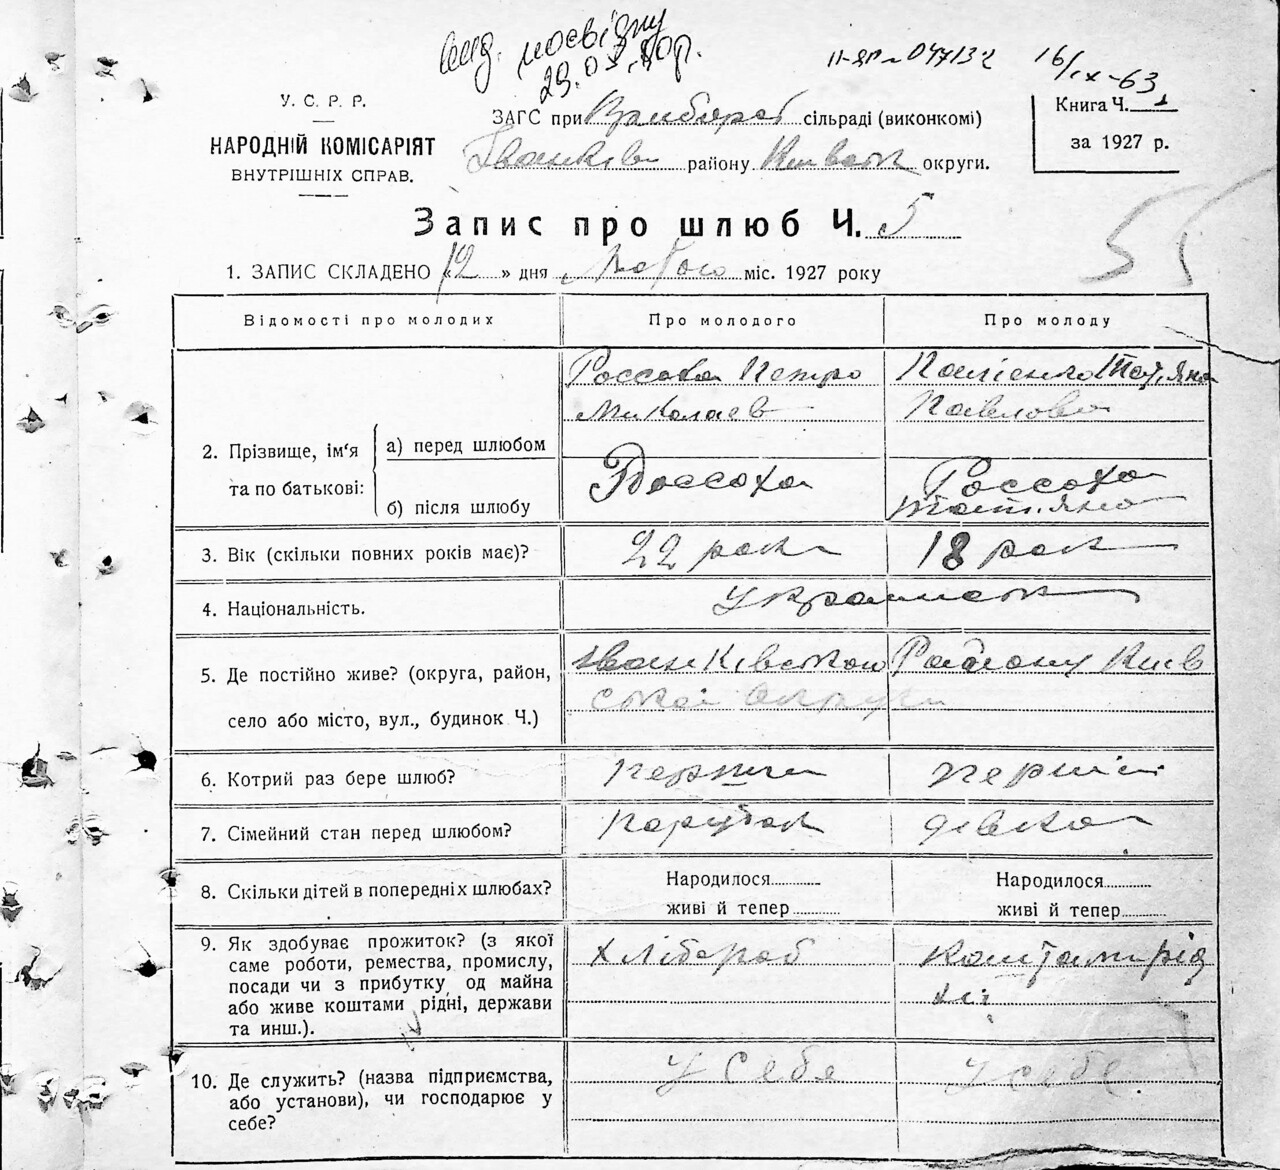 вид. посвідку
29.03.80р.
II-ЯР № 047132
16/IX-63
У. С. Р. Р.
НАРОДНІЙ КОМІСАРІЯТ
ВНУТРІШНІХ СПРАВ.
ЗАГС при сільраді (виконкомі)
Іванків району Київськ округи.
Книга Ч. 1
за 1927 р.
Запис про шлюб Ч. 5
55
1. ЗАПИС СКЛАДЕНО «12» дня Лютого міс. 1927 року
Відомості про молодих
Про молодого
Про молоду
2. Прізвище, ім'я
та по батькові:
а) перед шлюбом
Россоха Петро
Миколаєв
Татіяна
Павлова
б) після шлюбу
Россоха
Россоха
Татіяна
3. Вік (скільки повних років має)?
22 роки
18 рок
4. Національність.
Українськ
5. Де постійно живе? (округа, район,
село або місто, вул., будинок Ч.)
Іванківського Району Київ
ської округи
6. Котрий раз бере шлюб?
перший
перший
7. Сімейний стан перед шлюбом?
Парубок
дівка
8. Скільки дітей в попередніх шлюбах?
Народилося
живі й тепер
Народилося
живі й тепер
9. Як здобуває прожиток? (з якої
саме роботи, ремества, промислу,
посади чи з прибутку од майна
або живе коштами рідні, держави
та инш.).
Хлібороб
Коштами рід
ні
10. Де служить? (назва підприємства,
або установи), чи господарює у
себе?
у себе
у себе